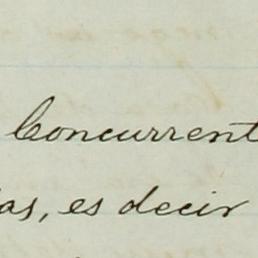 Concurrent
las, es decir